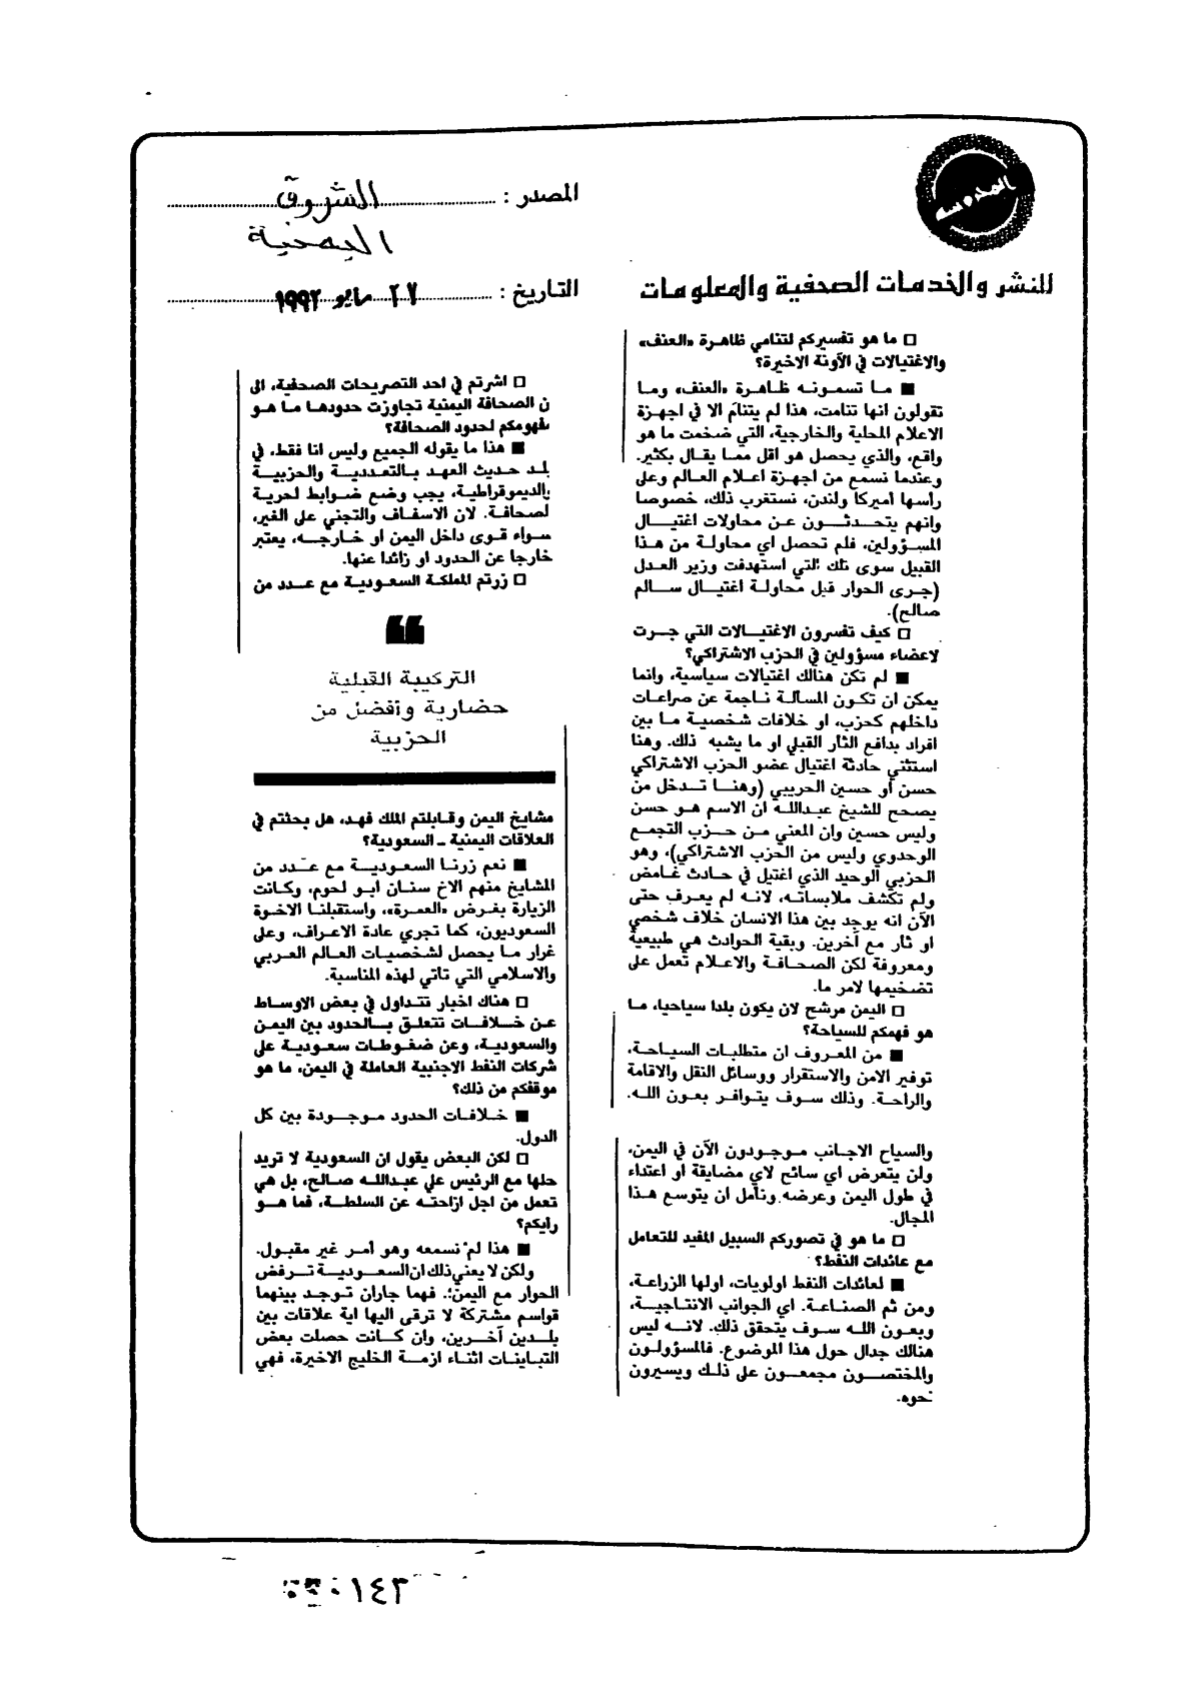 المحروسة
للنشر والخدمات الصحفية والمعلومات
المصدر : الشروق
التاريخ : ٢٧ مايو ١٩٩٢
□ ما هو تفسيركم لتنامي ظاهرة «العنف»
والاغتيالات في الآونة الاخيرة؟
■ ما تسمونه ظاهرة «العنف» وما
تقولون انها تنامت، هذا لم يتنام الا في اجهزة
الاعلام المحلية والخارجية، التي ضخمت ما هو
واقع، والذي يحصل هو اقل مما يقال بكثير.
وعندما نسمع من اجهزة اعلام العالم وعلى
رأسها أميركا ولندن، نستغرب ذلك، خصوصا
وانهم يتحدثون عن محاولات اغتيال
المسؤولين، فلم تحصل اي محاولة من هذا
القبيل سوى تلك التي استهدفت وزير العدل
(جرى الحوار قبل محاولة اغتيال سالم
صالح).
□ كيف تفسرون الاغتيالات التي جرت
لاعضاء مسؤولين في الحزب الاشتراكي؟
■ لم تكن هنالك اغتيالات سياسية، وانما
يمكن ان تكون المسألة ناجمة عن صراعات
داخلهم كحزب، او خلافات شخصية ما بين
افراد بدافع الثار القبلي او ما يشبه ذلك. وهنا
استثني حادثة اغتيال عضو الحزب الاشتراكي
حسن أو حسين الحريبي (وهنا تدخل من
يصحح للشيخ عبدالله ان الاسم هو حسن
وليس حسين وان المعني من حزب التجمع
الوحدوي وليس من الحزب الاشتراكي)، وهو
الحزبي الوحيد الذي اغتيل في حادث غامض
ولم تكشف ملابساته، لانه لم يعرف حتى
الآن انه يوجد بين هذا الانسان خلاف شخصي
او ثار مع آخرين. وبقية الحوادث هي طبيعية
ومعروفة لكن الصحافة والاعلام تعمل على
تضخيمها لامر ما.
□ اليمن مرشح لان يكون بلدا سياحيا، ما
هو فهمكم للسياحة؟
■ من المعروف ان متطلبات السياحة،
توفير الامن والاستقرار ووسائل النقل والاقامة
والراحة. وذلك سوف يتوافر بعون الله.
والسياح الاجانب موجودون الآن في اليمن،
ولن يتعرض اي سائح لاي مضايقة او اعتداء
في طول اليمن وعرضه ونأمل ان يتوسع هذا
المجال.
□ ما هو في تصوركم السبيل المفيد للتعامل
مع عائدات النفط؟
■ لعائدات النفط اولويات، اولها الزراعة،
ومن ثم الصناعة. اي الجوانب الانتاجية،
وبعون الله سوف يتحقق ذلك. لانه ليس
هنالك جدال حول هذا الموضوع. فالمسؤولون
والمختصون مجمعون على ذلك ويسيرون
نحوه.
□ اشرتم في احد التصريحات الصحفية، الى
ن الصحافة اليمنية تجاوزت حدودها ما هو
فهومكم لحدود الصحافة؟
■ هذا ما يقوله الجميع وليس انا فقط، في
بلد حديث العهد بالتعددية والحزبية
بالديموقراطية، يجب وضع ضوابط لحرية
لصحافة. لان الاسفاف والتجني على الغير،
سواء قوى داخل اليمن او خارجه، يعتبر
خارجا عن الحدود او زائدا عنها.
□ زرتم المملكة السعودية مع عدد من
التركيبة القبلية
حضارية وأفضل من
الحزبية
مشايخ اليمن وقابلتم الملك فهد، هل بحثتم في
العلاقات اليمنية ـ السعودية؟
■ نعم زرنا السعودية مع عدد من
المشايخ منهم الاخ سنان ابو لحوم، وكانت
الزيارة بغرض «العمرة»، واستقبلنا الاخوة
السعوديون، كما تجري عادة الاعراف، وعلى
غرار ما يحصل لشخصيات العالم العربي
والاسلامي التي تاتي لهذه المناسبة.
□ هناك اخبار تتداول في بعض الاوساط
عن خلافات تتعلق بالحدود بين اليمن
والسعودية، وعن ضغوطات سعودية على
شركات النفط الاجنبية العاملة في اليمن، ما هو
موقفكم من ذلك؟
■ خلافات الحدود موجودة بين كل
الدول.
□ لكن البعض يقول ان السعودية لا تريد
حلها مع الرئيس علي عبدالله صالح، بل هي
تعمل من اجل ازاحته عن السلطة، فما هو
رايكم؟
■ هذا لم نسمعه وهو أمر غير مقبول.
ولكن لا يعني ذلك ان السعودية ترفض
الحوار مع اليمن. فهما جاران توجد بينهما
قواسم مشتركة لا ترقى اليها اية علاقات بين
بلدين آخرين، وان كانت حصلت بعض
التباينات اثناء ازمة الخليج الاخيرة، فهي